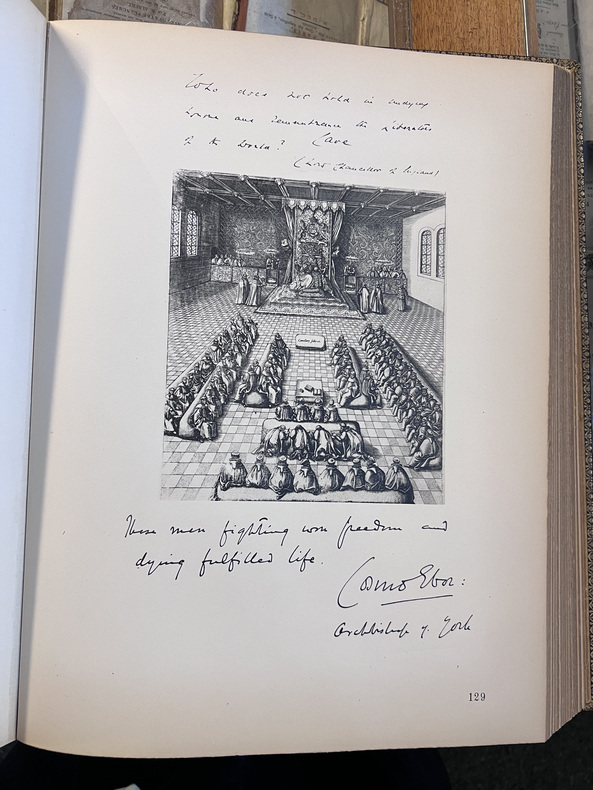 Who does not hold in undying
honour and remembrance the liberators
of the world? Cave
(Lord Chancellor of England)
These men fighting won freedom and
dying fulfilled life.
Cosmo Ebor:
Archbishop of York
129